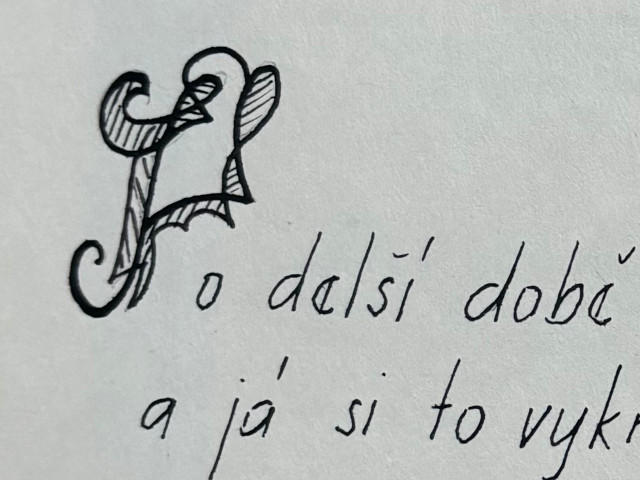 Po delší době
a já si to vykr